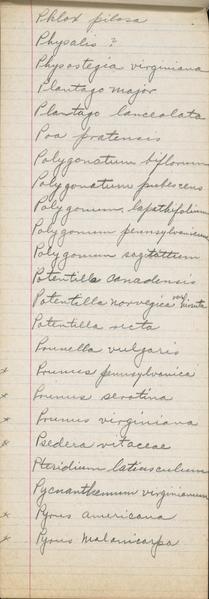 Phlox pilosa
Physalis ?
Physostegia virginiana
Plantago major
Plantago lanceolata
Poa pratensis
Polygonatum biflorum
Polygonatum pubescens
Polygonum lapathifolium
Polygonum pennsylvanicum
Polygonum sagittatum
Potentilla canadensis
Potentilla norvegica var hirsuta
Potentilla recta
Prunella vulgaris
x Prunus pennsylvanica
x Prunus serotina
x Prunus virginiana
x Psedera vitaceae
Pteridium latiusculum
Pycnanthemum virginianum
x Pyrus americana
x Pyrus melanicarpa